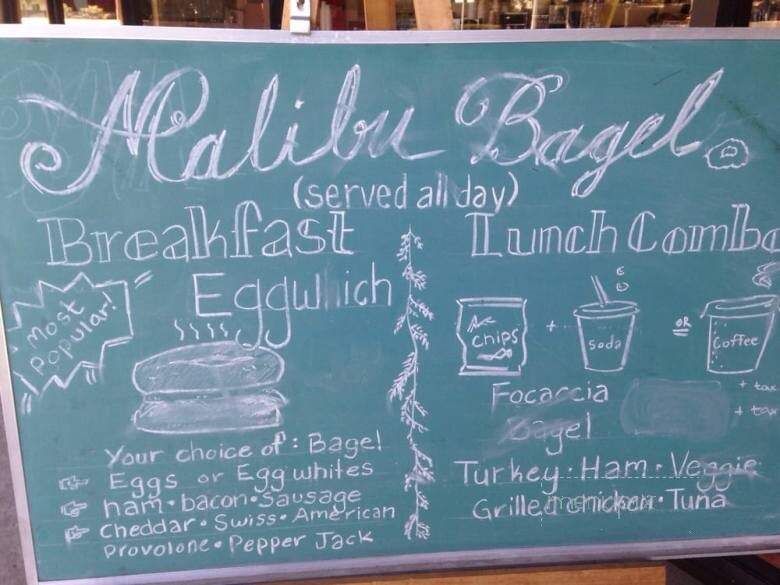 Malibu Bagel
(served all day)
Breakfast
Eggwich
Most
Popular!
Your choice of: Bagel
Eggs or Egg whites
ham • bacon • Sausage
Cheddar • Swiss • American
Provolone • Pepper Jack
Lunch Combo
chips
+
soda
OR
Coffee
+ tax
+ tax
Focaccia
Bagel
Turkey • Ham • Veggie
Grilled chicken • Tuna